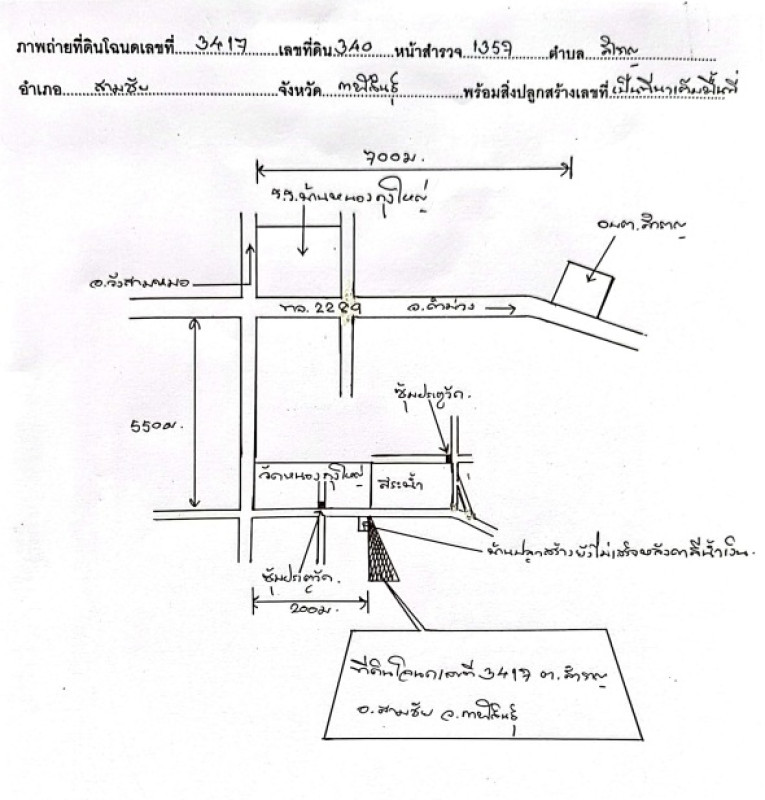 ภาพถ่ายที่ดินโฉนดเลขที่ 3417 เลขที่ดิน 340 หน้าสำรวจ 1357 ตำบล สำราญ
อำเภอ สามชัย จังหวัด กาฬสินธุ์ พร้อมสิ่งปลูกสร้างเลขที่ เป็นที่นาเต็มพื้นที่
700ม.
ร.ร.บ้านหนองกุงใหญ่
อบต.สำราญ
อ.วังสามหมอ
ทล.2289
อ.คำม่วง
ซุ้มประตูวัด.
550ม.
วัดหนองกุงใหญ่
สระน้ำ
บ้านปลูกสร้างยังไม่เสร็จหลังคาสีน้ำเงิน.
ซุ้มประตูวัด.
200ม.
ที่ดินโฉนดเลขที่ 3417 ต.สำราญ
อ.สามชัย จ.กาฬสินธุ์